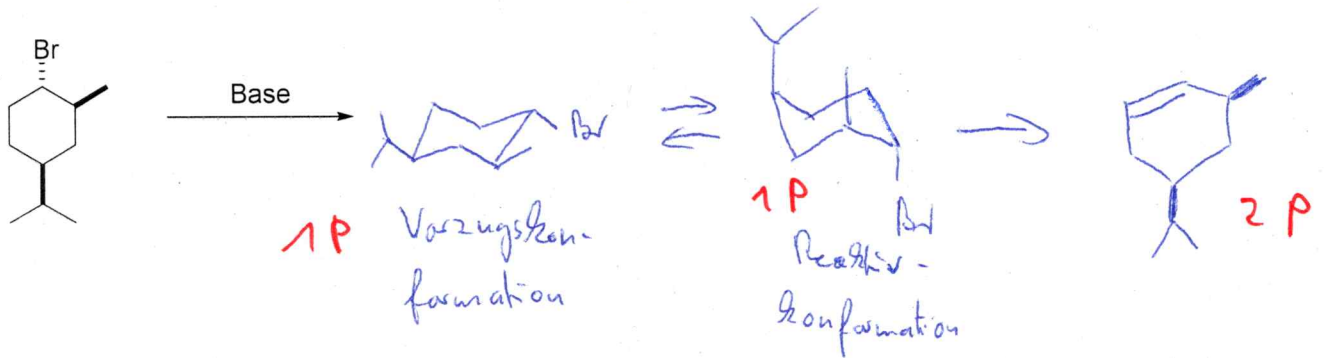 Br
Base
Br
1 P
Vorzugskon-
formation
1 P
Br
Reaktiv-
konformation
2 P